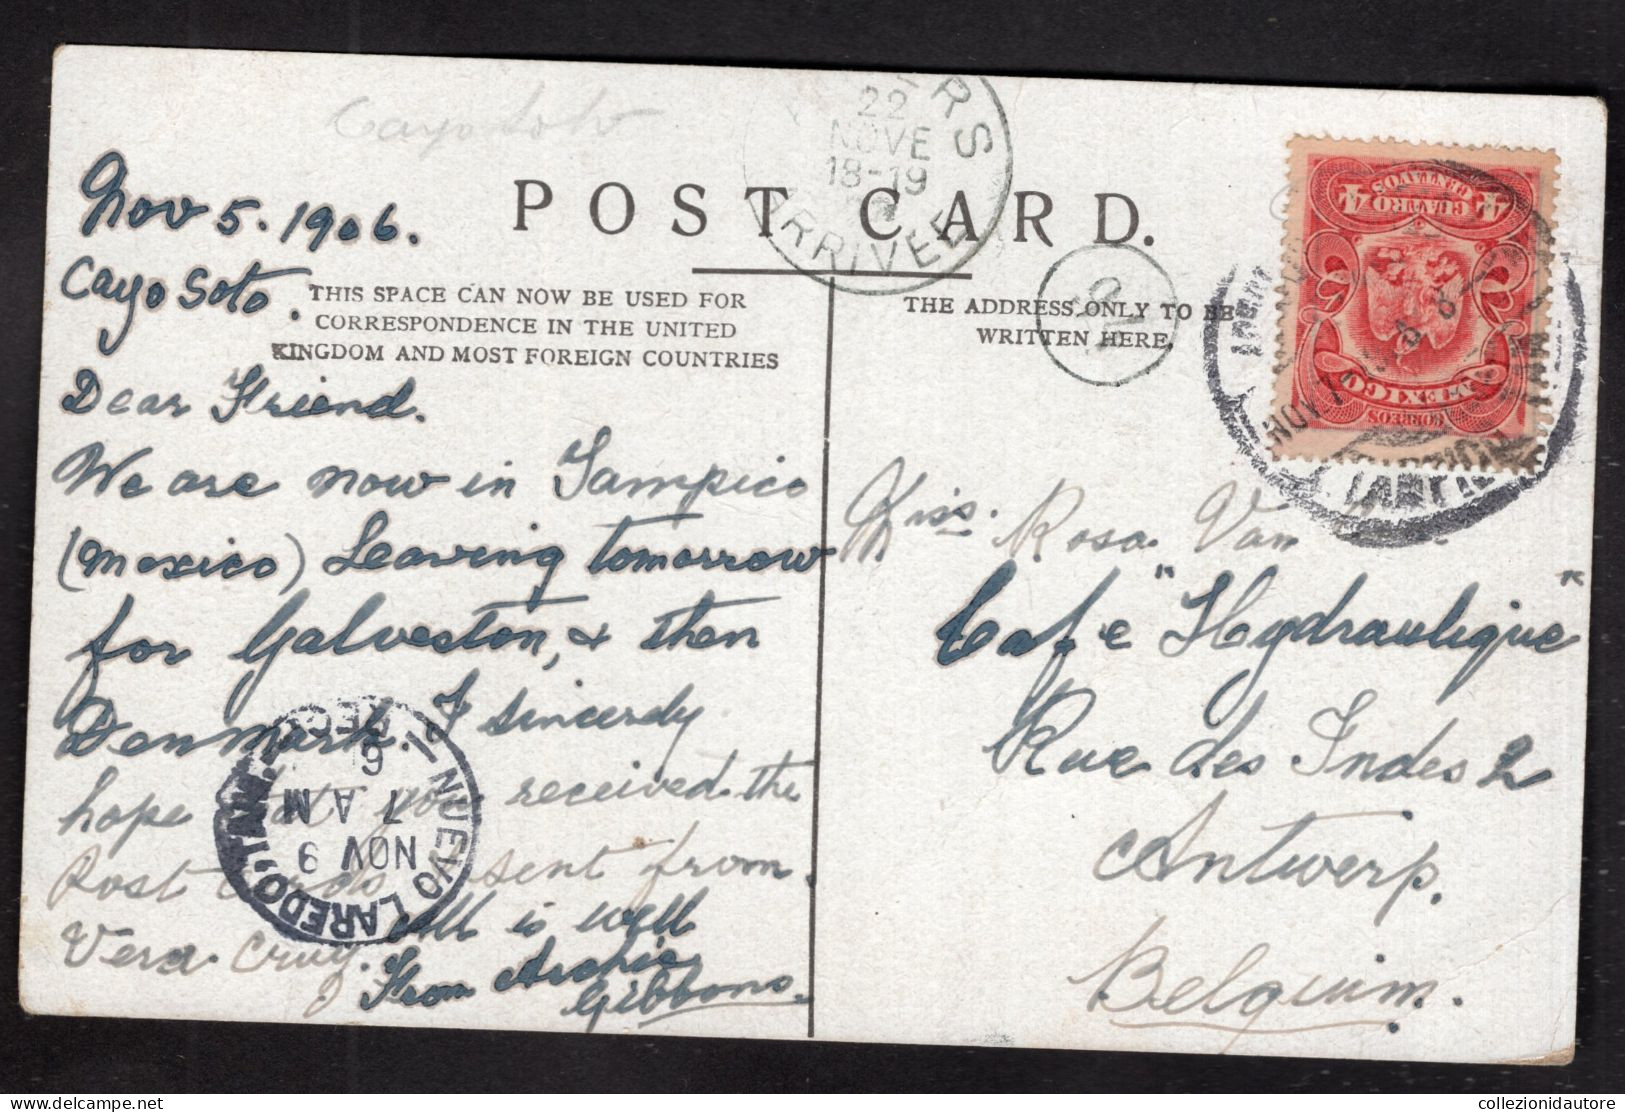 Cayo Soto
22
NOVE
18-19
ARRIVEE
POST CARD.
Nov 5. 1906.
Cayo Soto.
THIS SPACE CAN NOW BE USED FOR
CORRESPONDENCE IN THE UNITED
KINGDOM AND MOST FOREIGN COUNTRIES
Dear Friend.
We are now in Tampico
(Mexico) Leaving tomorrow
for Galveston, & then
Denmark. I sincerely
hope that you received the
Post Cards sent from
Vera Cruz.
All is well
From Archie
Gibbons.
NUEVO LAREDO, TAM.
RECD
6
7 AM
NOV 9
THE ADDRESS ONLY TO BE
WRITTEN HERE.
4 CUATRO 4
CENTAVOS
MEXICO
CORREOS
NOV 7
Miss. Rosa Van
Cafe "Hydraulique"
Rue des Indes 2
Antwerp.
Belgium.
collezionidautore
delcampe.net